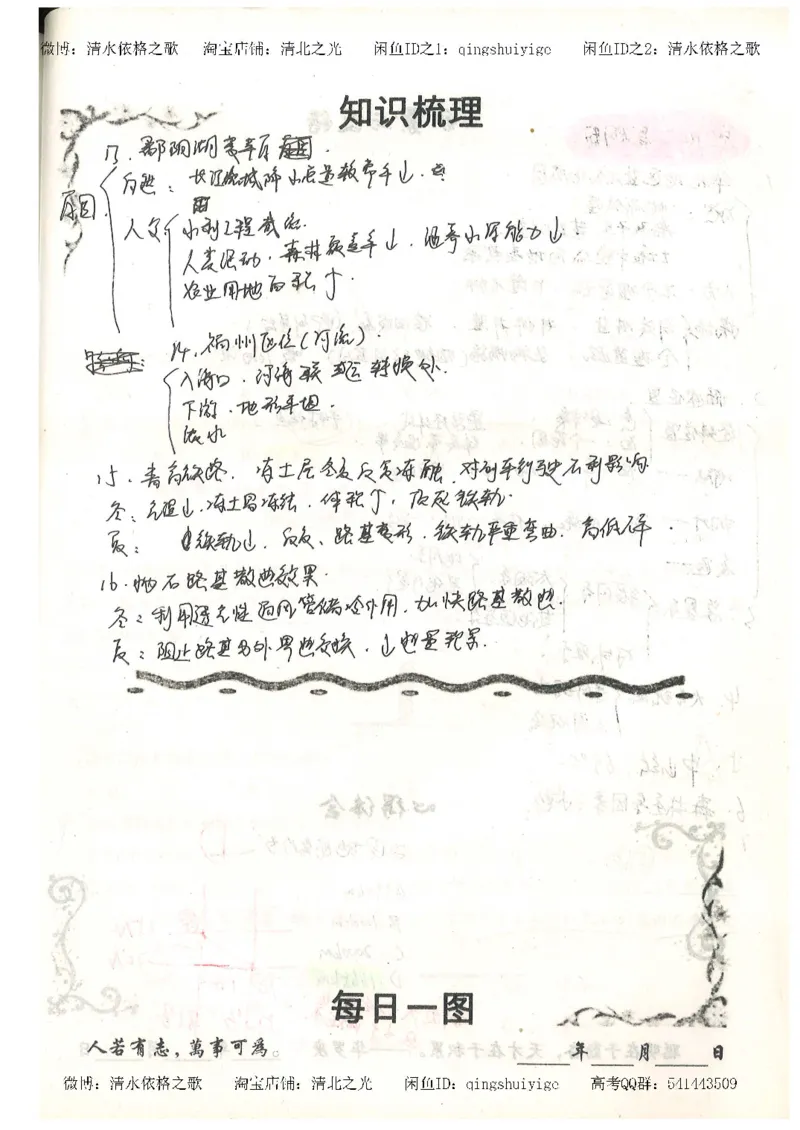 微博：清水依格之歌 淘宝店铺：清北之光 闲鱼ID之1：qingshuiyige 闲鱼ID之2：清水依格之歌
知识梳理
13. 鄱阳湖
自然：长江流域降水
原因
人文 水利工程截流
人类活动，森林覆盖率小，涵养水源能力小
农业用地面积
14. 福州区位（河流）
入海口，河海联运转换处
下游，地形平坦
淡水
15. 青藏铁路，冻土层冬夏反复冻融，对列车行驶不利影响
冬：冻土层冻结，体积
夏：路基变形，铁轨严重弯曲，高低不平
16. 抛石路基散热效果
冬：利用 通风管储冷作用，加快路基散热
夏：阻止路基与外界热交换
每日一图
人若有志，萬事可為。
年 月 日
微博：清水依格之歌 淘宝店铺：清北之光 闲鱼ID：qingshuiyige 高考QQ群：541443509